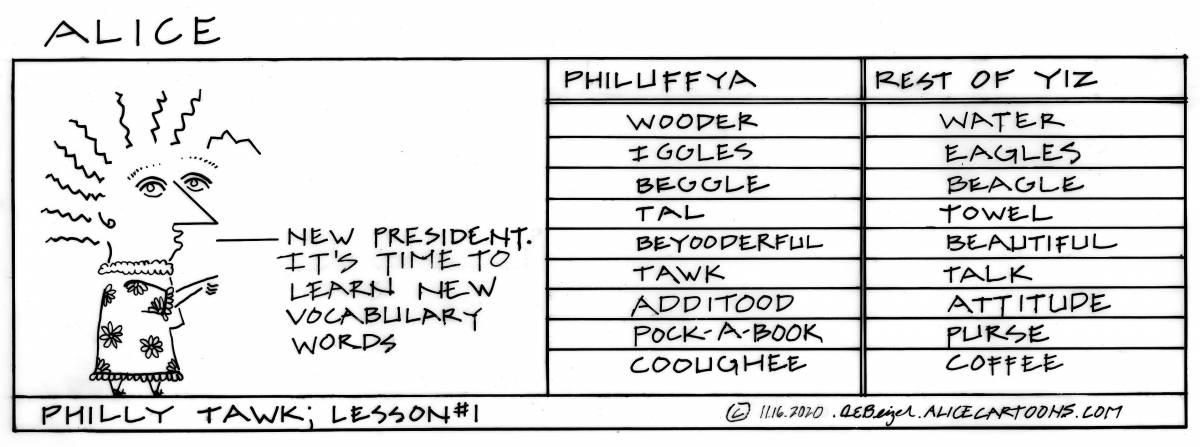 ALICE
NEW PRESIDENT.
IT'S TIME TO
LEARN NEW
VOCABULARY
WORDS
PHILUFFYA REST OF YIZ
WOODER WATER
IGGLES EAGLES
BEGGLE BEAGLE
TAL TOWEL
BEYOODERFUL BEAUTIFUL
TAWK TALK
ADDITOOD ATTITUDE
POCK-A-BOOK PURSE
COOUGHEE COFFEE
PHILLY TAWK; LESSON #1 © 11.16.2020 . DEBeizer. ALICECARTOONS.COM